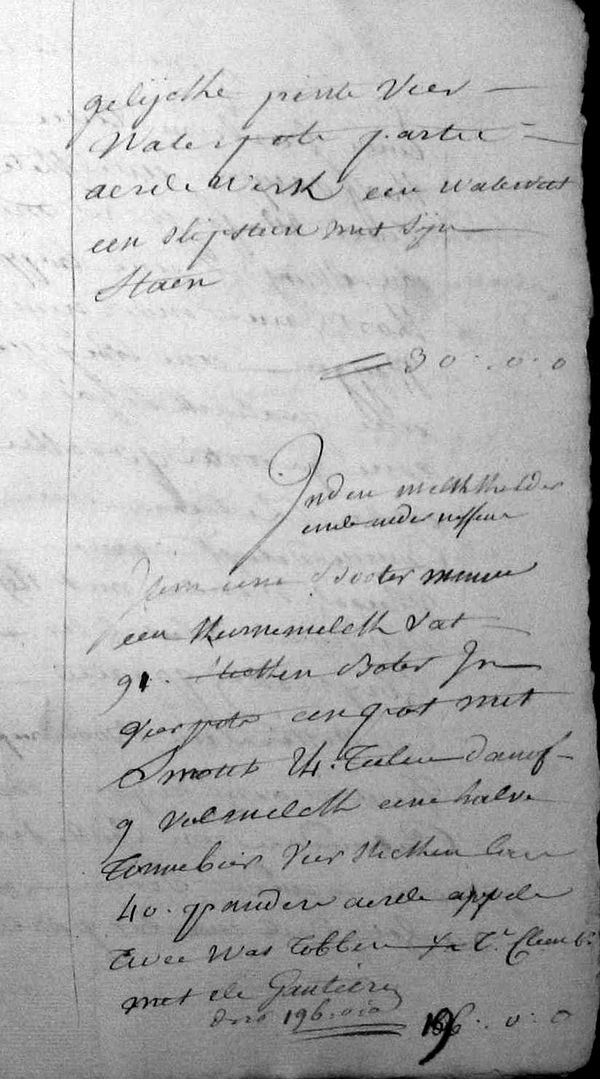 gelijcke pinte vier
Waterpots partie
aerde Werk een watervat
een slijpsteen met sijn
staen
30 . 0 . 0
Inden melkkelder
ende ander neffens
Item eene Booter
een Kernemelck vat
91. stecken Boter In
vier pots een pot met
Smout 24. Teelen
9 vol melck eene halve
Tonne bier vier stecken
40. ponden aerde appele
twee was tobben
met de
196.0.0 196 . 0 . 0